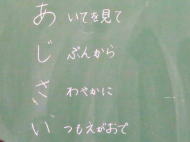 あいてを見て
じぶんから
さわやかに
いつもえがおで